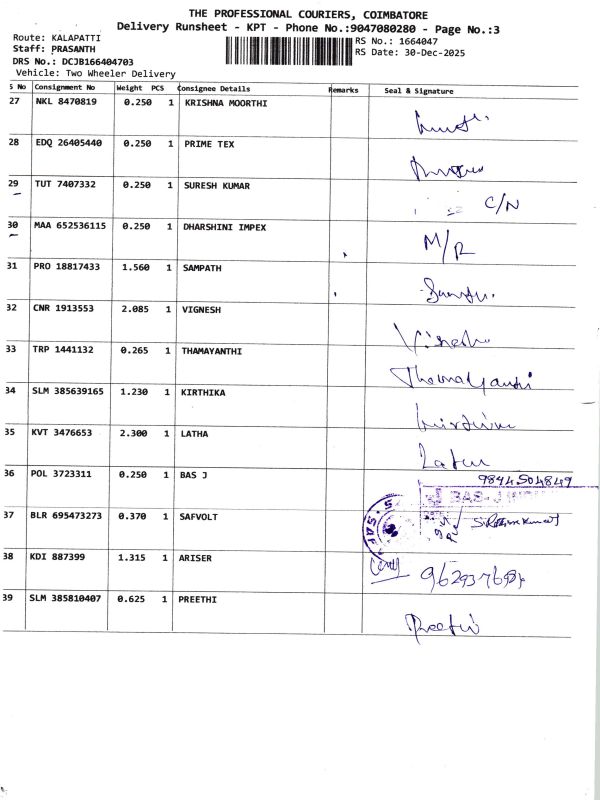 THE PROFESSIONAL COURIERS, COIMBATORE
Delivery Runsheet - KPT - Phone No.:9047080280 - Page No.:3
Route: KALAPATTI
RS No.: 1664047
Staff: PRASANTH
RS Date: 30-Dec-2025
DRS No.: DCJB166404703
Vehicle: Two Wheeler Delivery
S No Consignment No Weight PCS Consignee Details Remarks Seal & Signature
27 NKL 8470819 0.250 1 KRISHNA MOORTHI
28 EDQ 26405440 0.250 1 PRIME TEX
29 TUT 7407332 0.250 1 SURESH KUMAR C/N
30 MAA 652536115 0.250 1 DHARSHINI IMPEX M/R
31 PRO 18817433 1.560 1 SAMPATH
32 CNR 1913553 2.085 1 VIGNESH Vignesh
33 TRP 1441132 0.265 1 THAMAYANTHI Thamayanthi
34 SLM 385639165 1.230 1 KIRTHIKA
35 KVT 3476653 2.300 1 LATHA Latha
36 POL 3723311 0.250 1 BAS J 9894504849
BAS-J
37 BLR 695473273 0.370 1 SAFVOLT
38 KDI 887399 1.315 1 ARISER
39 SLM 385810407 0.625 1 PREETHI Preethi